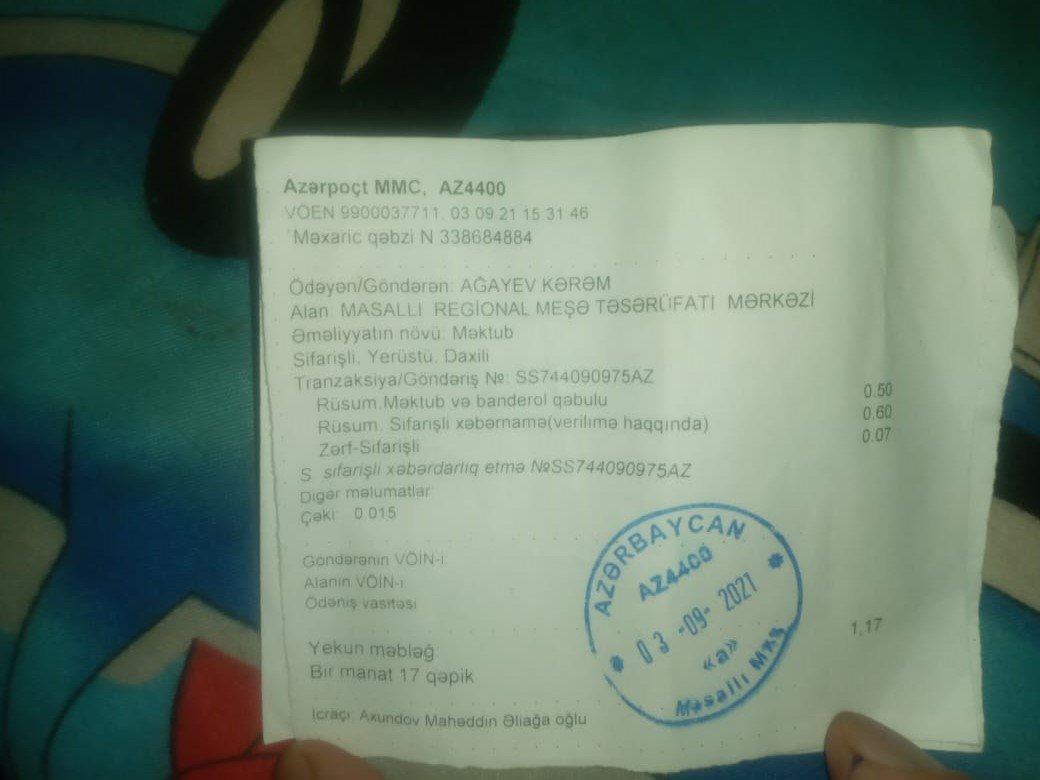 Azərpoçt MMC, AZ4400
VÖEN 9900037711. 03 09 21 15 31 46
Məxaric qəbzi N 338684884
Ödəyən/Göndərən: AĞAYEV KƏRƏM
Alan: MASALLI REGİONAL MEŞƏ TƏSƏRÜFATI MƏRKƏZİ
Əməliyyatın növü: Məktub
Sifarişli, Yerüstü, Daxili
Tranzaksiya/Göndəriş №: SS744090975AZ
Rüsum.Məktub və banderol qəbulu 0.50
Rüsum. Sifarişli xəbərnamə(verilimə haqqında) 0.60
Zərf-Sifarişli 0.07
S sifarişli xəbərdarlıq etmə №SS744090975AZ
Digər məlumatlar
Çəki: 0.015
Göndərənin VÖİN-i
Alanın VÖİN-i
Ödəniş vasitəsi
Yekun məbləğ 1,17
Bir manat 17 qəpik
İcraçı: Axundov Mahəddin Əliağa oğlu
AZƏRBAYCAN
AZ4400
03-09-2021
«a»
Masallı MXŞ